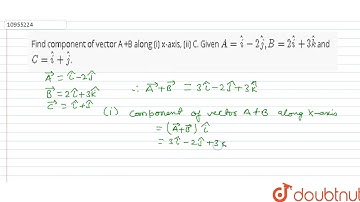 10955224
Find component of vector A +B along (i) x-axis, (ii) C. Given A = î − 2ĵ, B = 2î + 3k̂ and
C = î + ĵ.
A⃗ = î − 2ĵ
B⃗ = 2î + 3k̂
C⃗ = î + ĵ
∴ A⃗ + B⃗ = 3î − 2ĵ + 3k̂
(i) Component of vector A+B along x-axis
= (A⃗+B⃗) î
= 3î − 2ĵ + 3k
doubtnut